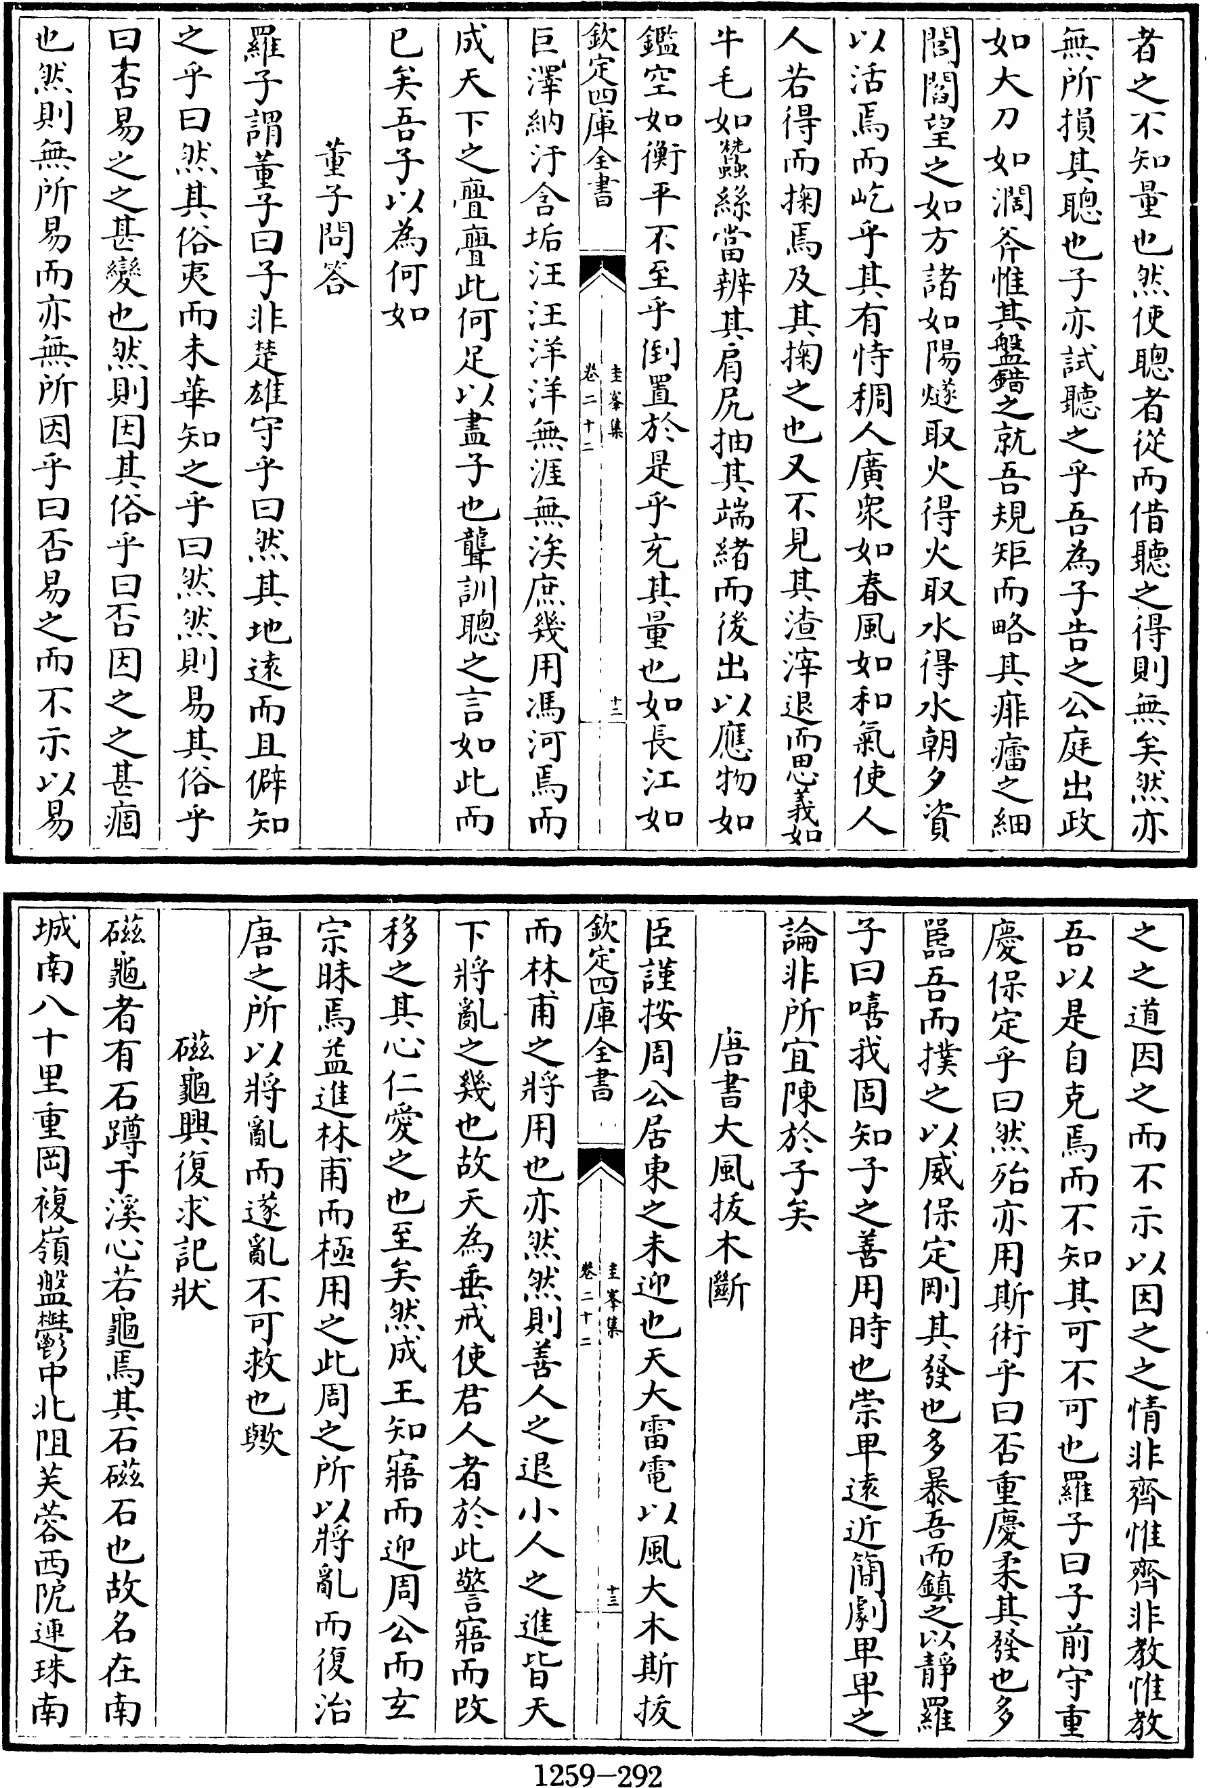 者之不知量也然使聰者從而借聽之得則無矣然亦
無所損其聰也子亦試聽之乎吾為子告之公庭出政
如大刀如濶斧惟其盤錯之就吾規矩而略其痱癗之細
閭閻望之如方諸如陽燧取火得火取水得水朝夕資
以活焉而屹乎其有恃稠人廣衆如春風如和氣使人
人若得而掬焉及其掬之也又不見其渣滓退而思義如
牛毛如蠶絲當辨其肩尻抽其端緒而後出以應物如
鑑空如衡平不至乎倒置於是乎充其量也如長江如
欽定四庫全書
圭峯集
卷二十二
十二
巨澤納汙含垢汪汪洋洋無涯無涘庶幾用馮河焉而
成天下之亹亹此何足以盡子也聾訓聰之言如此而
已矣吾子以為何如
董子問答
羅子謂董子曰子非楚雄守乎曰然其地逺而且僻知
之乎曰然其俗夷而未華知之乎曰然然則易其俗乎
曰否易之之甚變也然則因其俗乎曰否因之之甚痼
也然則無所易而亦無所因乎曰否易之而不示以易
之之道因之而不示以因之之情非齊惟齊非教惟教
吾以是自克焉而不知其可不可也羅子曰子前守重
慶保定乎曰然殆亦用斯術乎曰否重慶柔其發也多
嚚吾而撲之以威保定剛其發也多暴吾而鎮之以靜羅
子曰嘻我固知子之善用時也崇卑逺近簡劇卑卑之
論非所宜陳於子矣
唐書大風拔木斷
臣謹按周公居東之未迎也天大雷電以風大木斯拔
欽定四庫全書
圭峯集
卷二十二
十三
而林甫之將用也亦然然則善人之退小人之進皆天
下將亂之幾也故天為垂戒使君人者於此警寤而改
移之其心仁愛之也至矣然成王知寤而迎周公而玄
宗昧焉益進林甫而極用之此周之所以將亂而復治
唐之所以將亂而遂亂不可救也歟
磁龜興復求記狀
磁龜者有石蹲于溪心若龜焉其石磁石也故名在南
城南八十里重岡複嶺盤鬱中北阻芙蓉西阸連珠南
1259-292